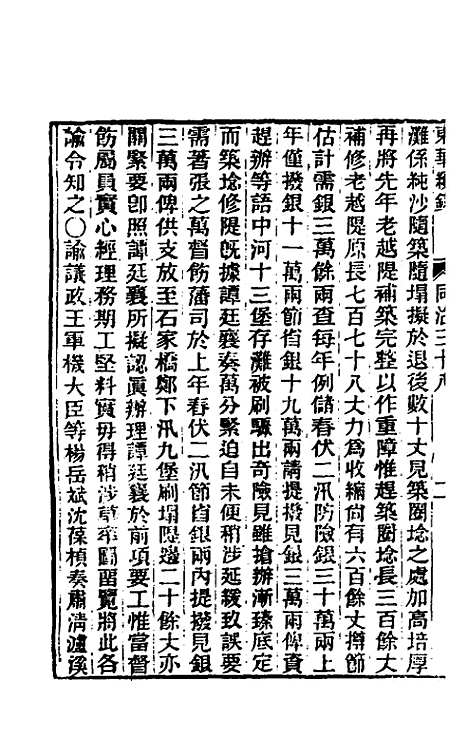 東華續錄 同治三十八 二
灘係純沙隨築隨塌擬於退後數十丈見築圈埝之處加高培厚
再將先年老越隄補築完整以作重障惟趕築圈埝長三百餘丈
補修老越隄原長七百七十八丈力為收縮尚有六百餘丈撙節
估計需銀三萬餘兩查每年例儲春伏二汛防險銀三十萬兩上
年僅撥銀十一萬兩節省銀十九萬兩請提撥見銀三萬兩俾資
趕辦等語中河十三堡存灘被刷驟出奇險見雖搶辦漸臻底定
而築埝修隄旣據譚廷襄奏萬分緊迫自未便稍涉延緩致誤要
需著張之萬督飭藩司於上年春伏二汛節省銀兩內提撥見銀
三萬兩俾供支放至石家橋鄭下汛九堡刷塌隄邊二十餘丈亦
關緊要卽照譚廷襄所擬認眞辦理譚廷襄於前項要工惟當督
飭屬員實心經理務期工堅料實毋得稍涉草率圖㽞覽將此各
諭令知之〇諭議政王軍機大臣等楊岳斌沈葆楨奏肅淸瀘溪